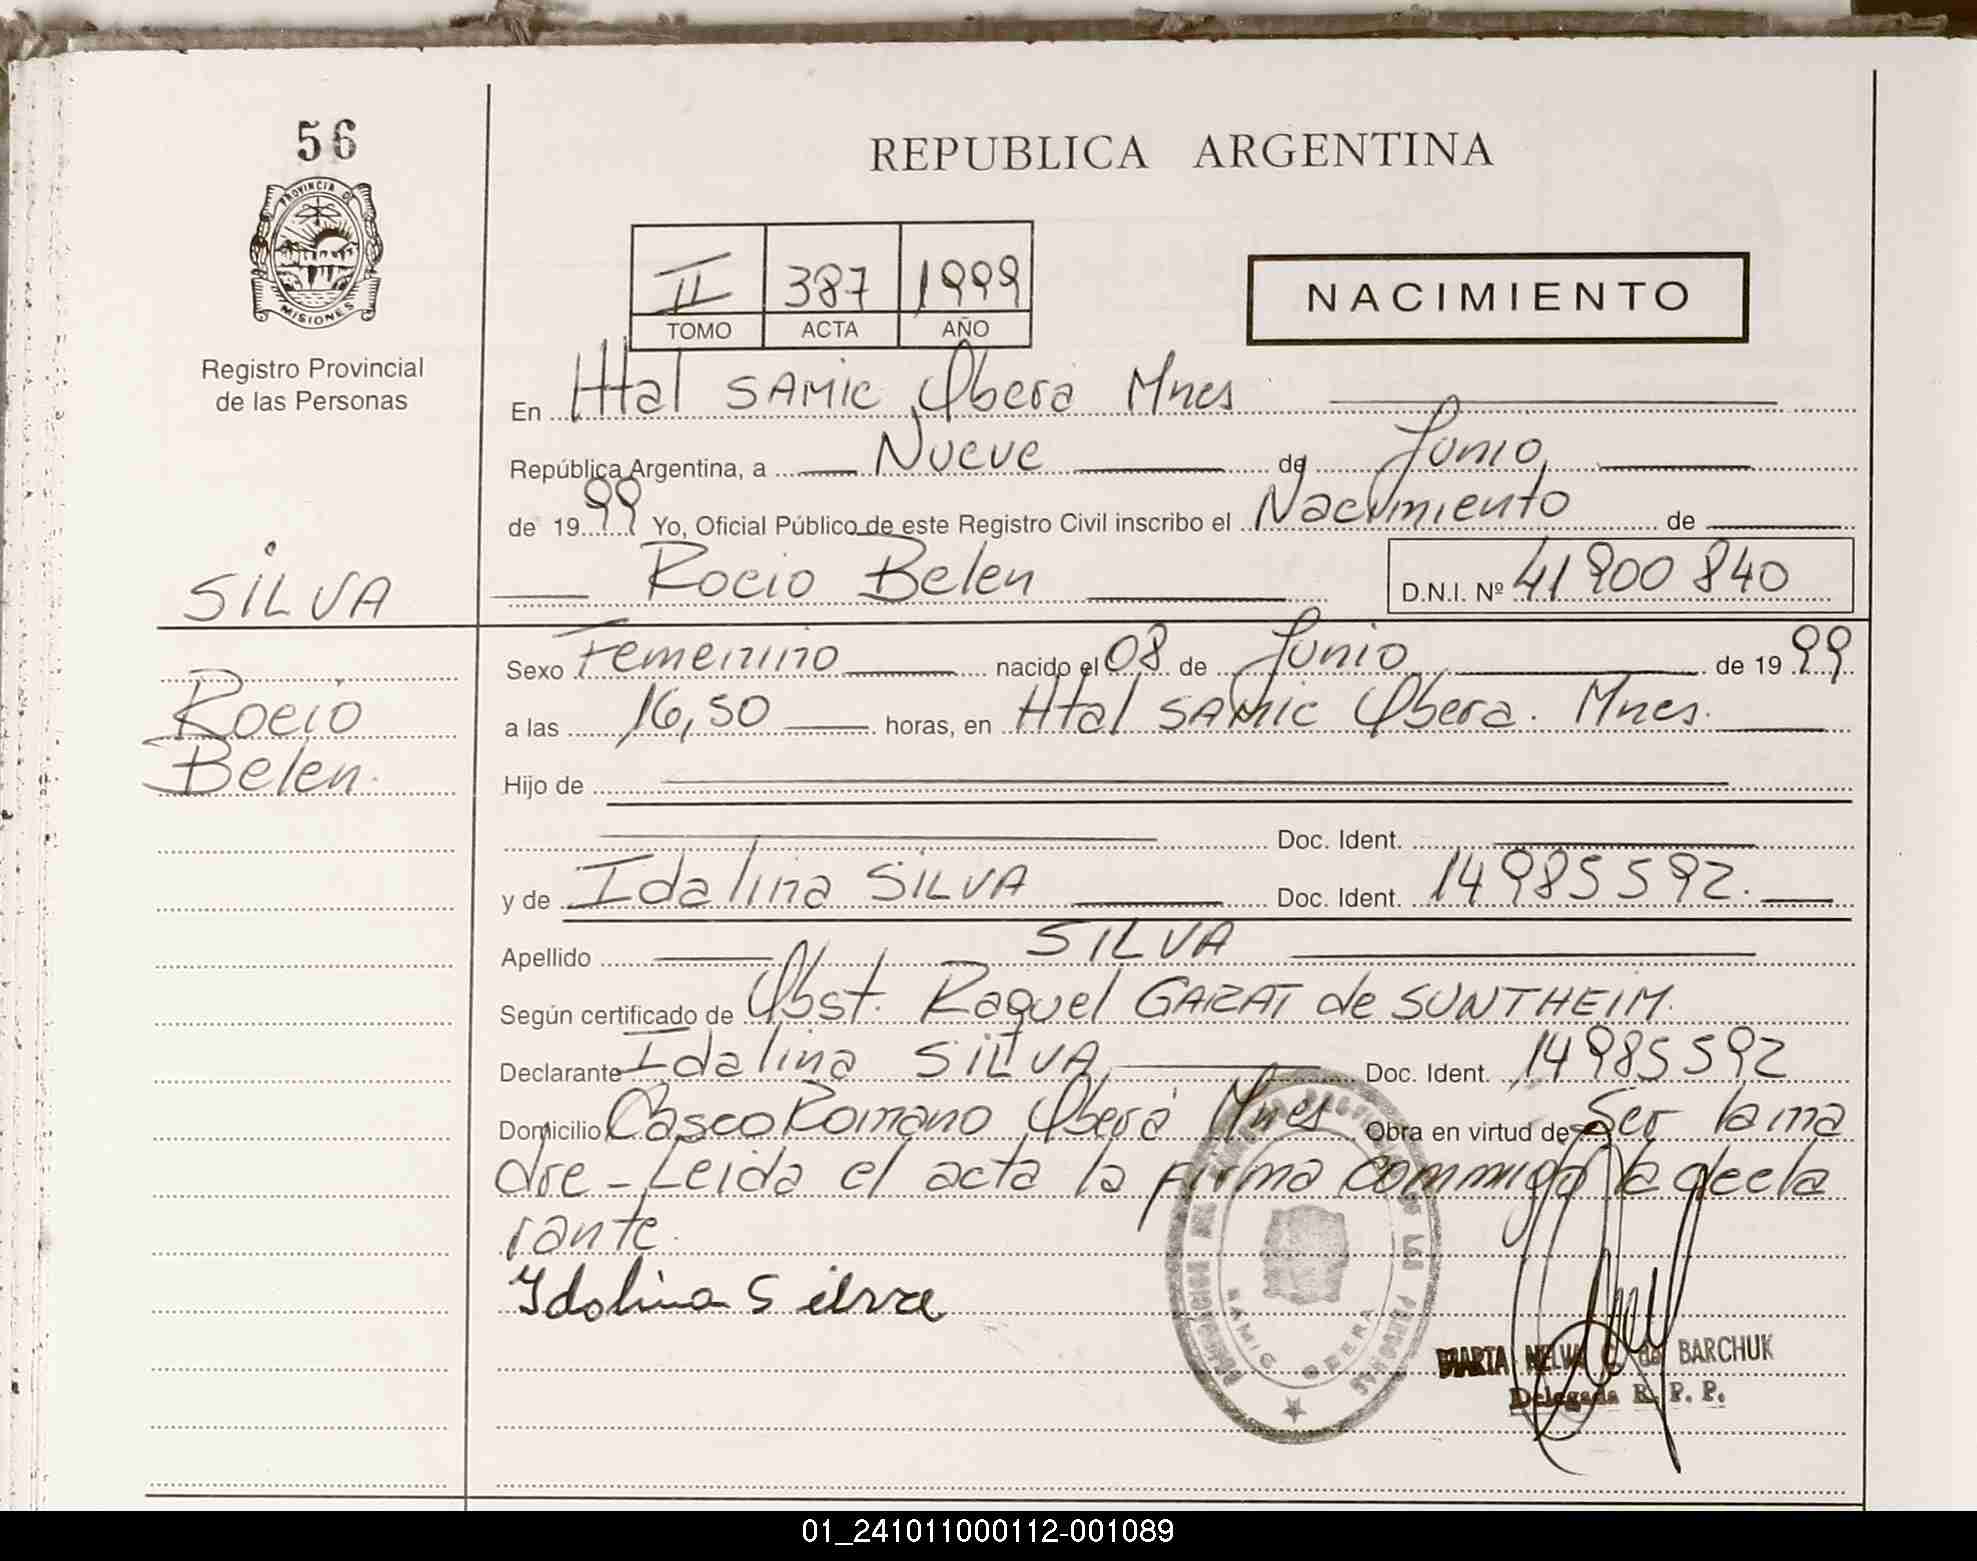 56
REPUBLICA ARGENTINA
PROVINCIA DE
MISIONES
Registro Provincial
de las Personas
II 387 1999
TOMO ACTA AÑO
NACIMIENTO
En Htal SAMIC Oberá Mnes
República Argentina, a Nueve de Junio
de 1999 Yo, Oficial Público de este Registro Civil inscribo el Nacimiento de
SILVA
Rocio Belen
D.N.I. Nº 41900840
Rocio
Belen.
Sexo Femenino nacido el 08 de Junio de 1999
a las 16,50 horas, en Htal SAMIC Oberá. Mnes.
Hijo de
Doc. Ident.
y de Idalina SILVA Doc. Ident. 14985592.
Apellido SILVA
Según certificado de Obst. Raquel GARAT de SUNTHEIM.
Declarante Idalina SILVA Doc. Ident. 14985592
Domicilio Casco Romano Oberá Mnes Obra en virtud de Ser la ma
dre - Leida el acta la firma commigo la decla
rante.
Idolina Silva
SAMIC OBERA
MARTA NELVA C. de BARCHUK
Delegada R. P. P.
01_241011000112-001089